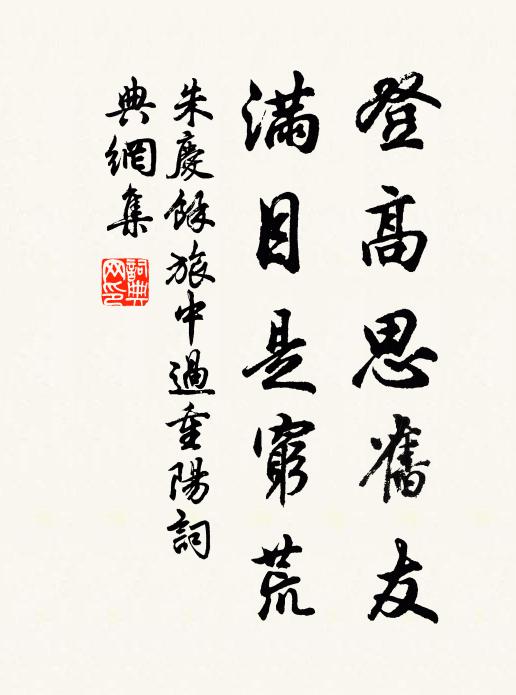 登高思舊友
滿目是窮荒
朱慶餘旅中過重陽詞
典網集
詞典
网印